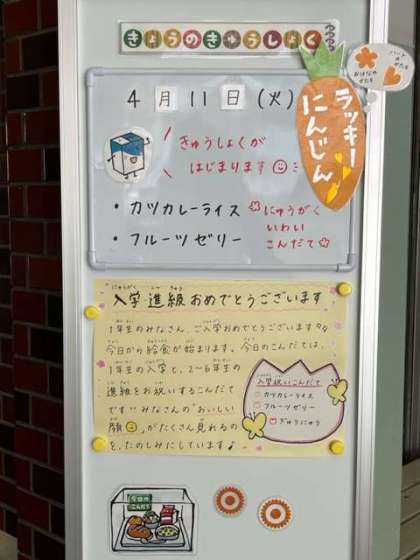 きょうのきゅうしょく
4月11日(火)
ハートの
かたち
おはなの
かたち
ラッキー
にんじん
きゅうしょくが
はじまります
・カツカレーライス
・フルーツゼリー
にゅうがく
いわい
こんだて
入学進級おめでとうございます
1年生のみなさん、ご入学おめでとうございます
今日から給食が始まります。今日のこんだては、
1年生の入学と、2~6年生の
進級をお祝いするこんだて
です!!みなさんの"おいしい
顔"がたくさん見れるの
を、たのしみにしています♪
入学祝いこんだて
カツカレーライス
フルーツゼリー
ぎゅうにゅう
今日の
こんだて